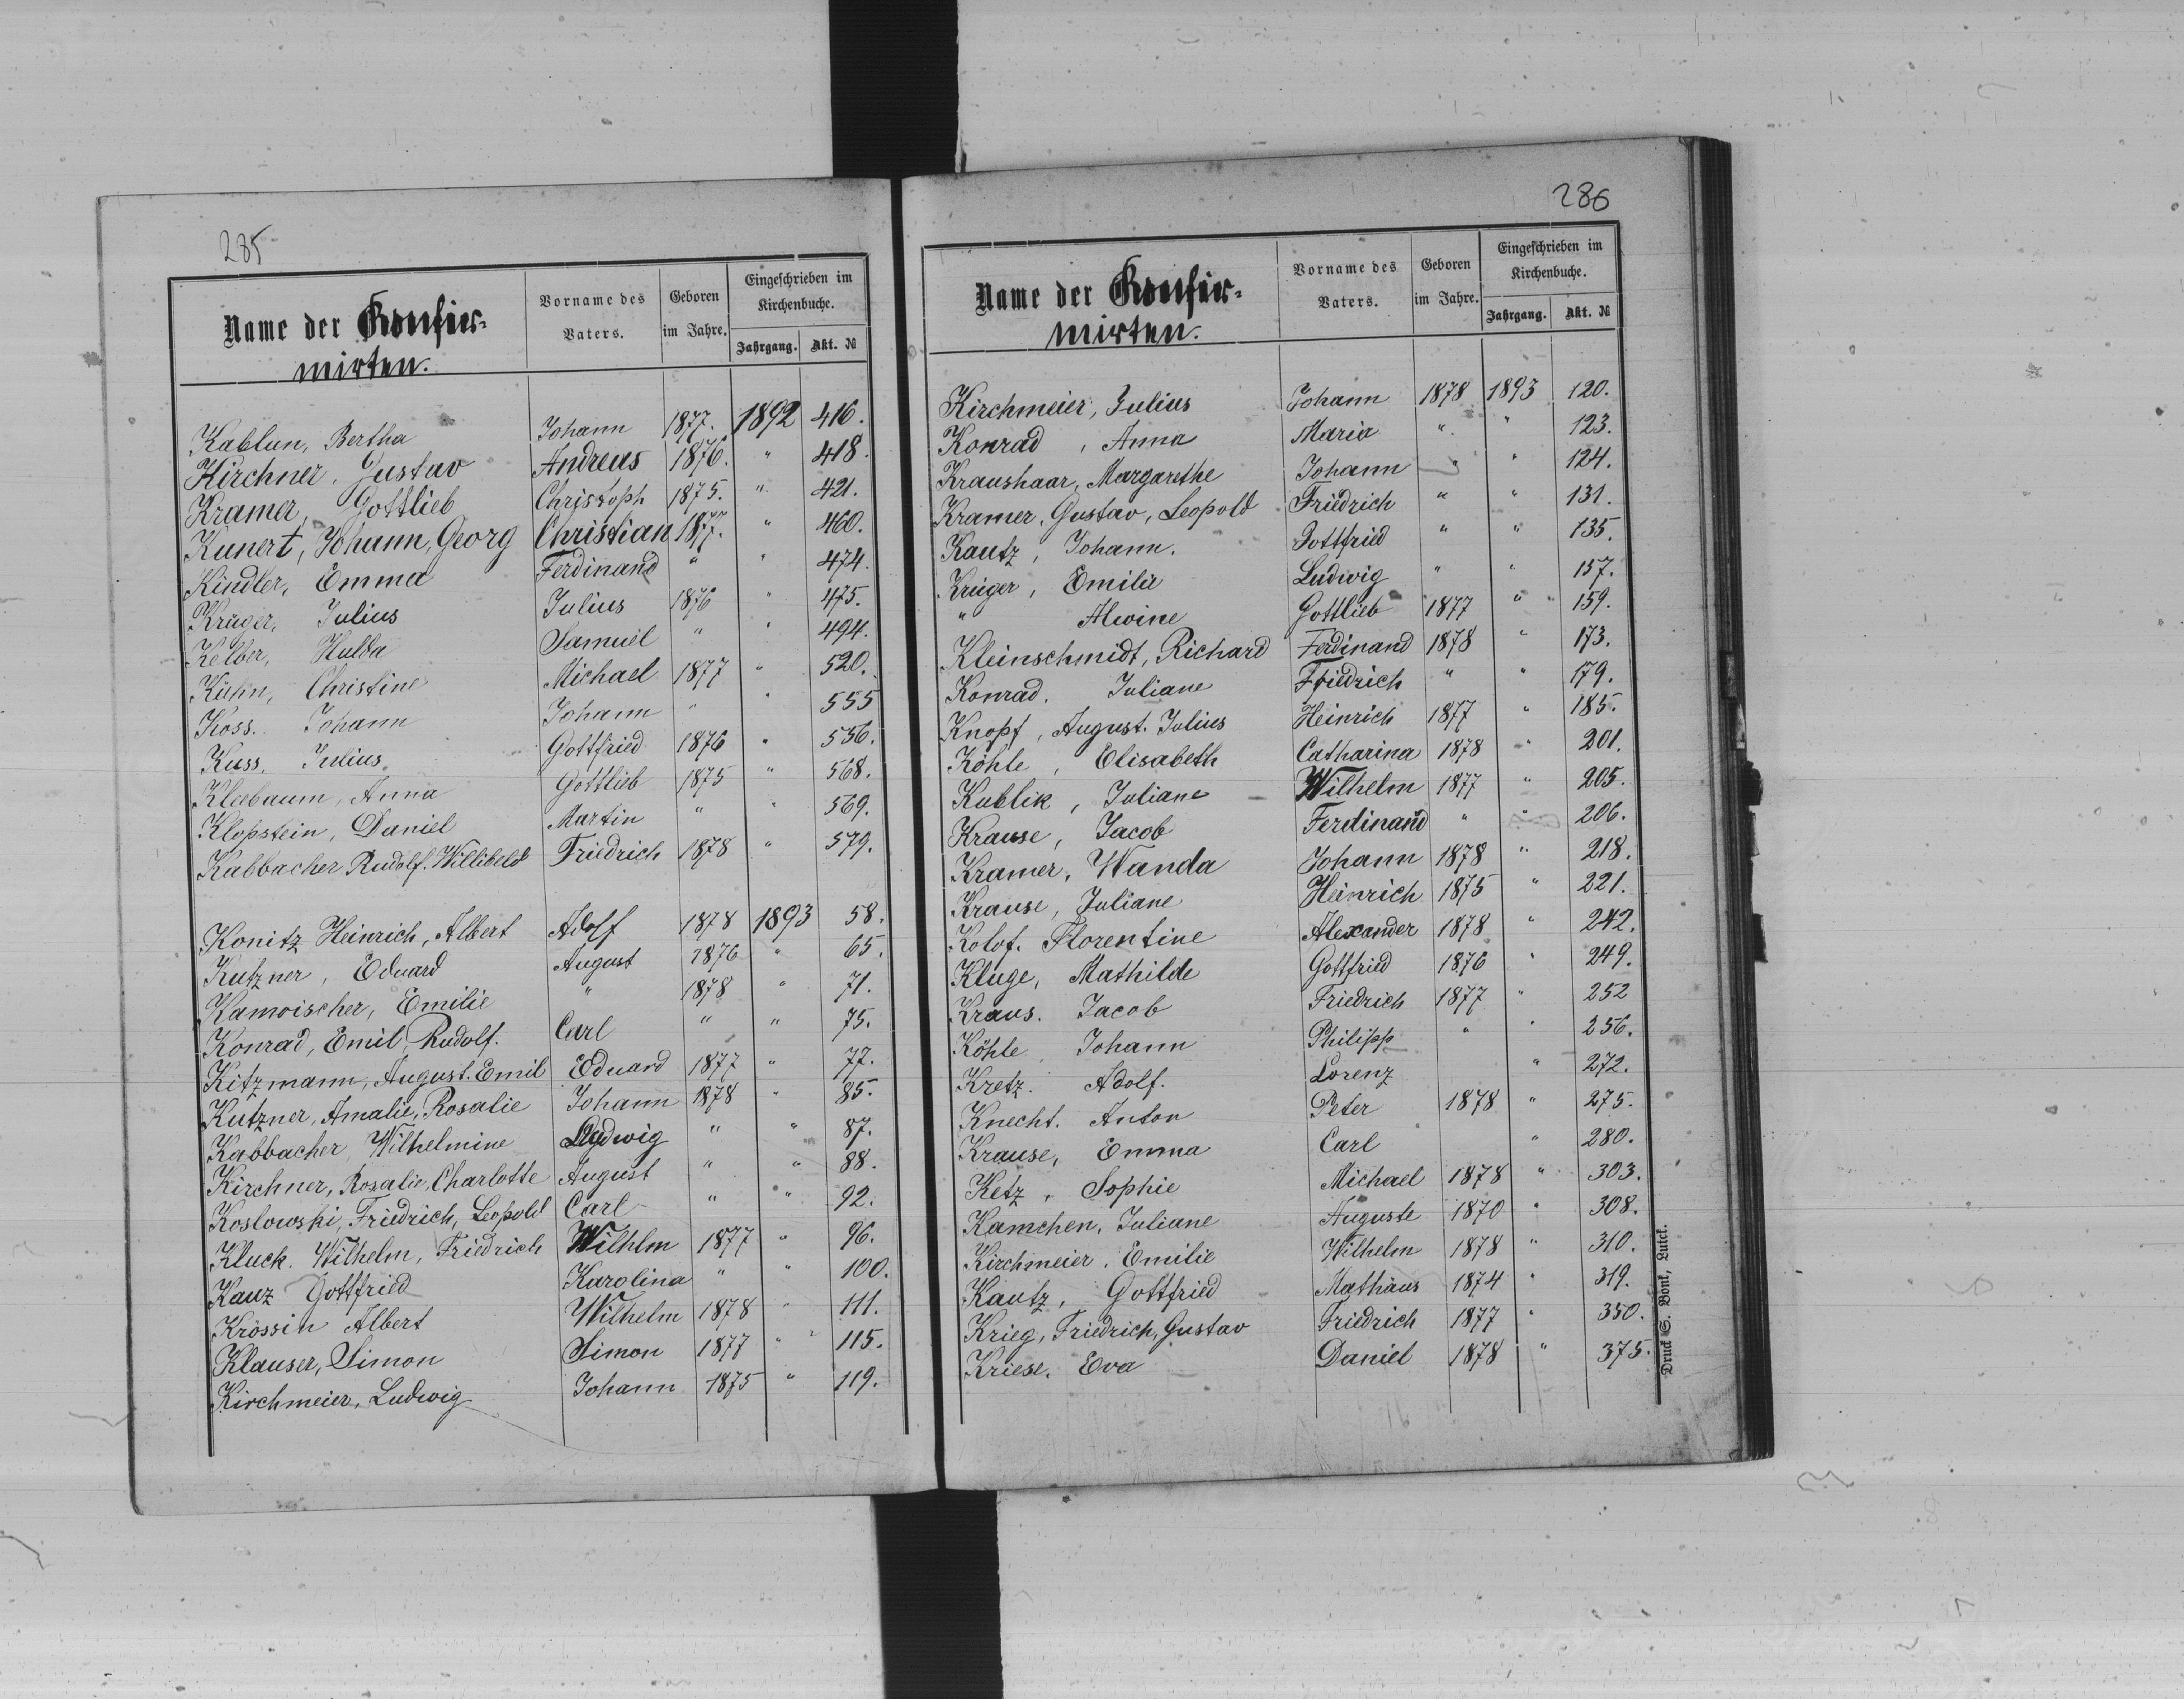 285
Name der Konfir-
mirten.
Vorname des
Vaters.
Geboren
im Jahre.
Eingeschrieben im
Kirchenbuche.
Jahrgang. Akt. №
Kablun, Bertha Johann 1877. 1892 416.
Kirchner, Gustav Andreas 1876. " 418.
Kramer, Gottlieb Christoph 1875. " 421.
Kunert, Johann, Georg Christian 1877. " 460.
Kindler, Emma Ferdinand " " 474.
Krüger, Julius Julius 1876 " 475.
Kelber, Hulda Samuel " " 494.
Kühn, Christine Michael 1877 " 520.
Koss. Johann Johann " " 555
Kuss. Julius. Gottfried 1876 " 556.
Kleebaum, Anna Gottlieb 1875 " 568.
Klopstein, Daniel Martin " " 569.
Kabbacher Rudolf. Willibeld Friedrich 1878 " 579.
Konitz Heinrich, Albert Adolf 1878 1893 58.
Kutzner, Eduard August 1876 " 65.
Kamoischer, Emilie " 1878 " 71.
Konrad, Emil, Rudolf. Carl " " 75.
Kitzmann, August. Emil Eduard 1877 " 77.
Kutzner, Amalie, Rosalie Johann 1878 " 85.
Kabbacher, Wilhelmine Ludwig " " 87.
Kirchner, Rosalie, Charlotte August " " 88.
Koslowski, Friedrich, Leopold Carl " " 92.
Kluck. Wilhelm, Friedrich Wilhlm 1877 " 96.
Kauz Gottfried Karolina " " 100.
Krössin Albert Wilhelm 1878 " 111.
Klauser, Simon Simon 1877 " 115.
Kirchmeier, Ludwig Johann 1875 " 119.
286
Name der Konfir-
mirten.
Vorname des
Vaters.
Geboren
im Jahre.
Eingeschrieben im
Kirchenbuche.
Jahrgang. Akt. №
Kirchmeier, Julius Johann 1878 1893 120.
Konrad, Anna Maria " " 123.
Kraushaar, Margarethe Johann " " 124.
Kramer, Gustav, Leopold Friedrich " " 131.
Kautz, Johann. Gottfried " " 135.
Krüger, Emilie Ludwig " " 157.
" Alwine Gottlieb 1877 " 159.
Kleinschmidt, Richard Ferdinand 1878 " 173.
Konrad. Juliane Friedrich " " 179.
Knopf, August. Julius Heinrich 1877 " 185.
Köhle, Elisabeth Catharina 1878 " 201.
Kublik, Juliane Wilhelm 1877 " 205.
Krause, Jacob Ferdinand " " 206.
Kramer, Wanda Johann 1878 " 218.
Krause, Juliane Heinrich 1875 " 221.
Kolof. Florentine Alexander 1878 " 242.
Kluge, Mathilde Gottfried 1876 " 249.
Kraus. Jacob Friedrich 1877 " 252
Köhle, Johann Philipp " " 256.
Kretz. Adolf. Lorenz " 272.
Knecht. Anton Peter 1878 " 275.
Krause, Emma Carl " 280.
Ketz, Sophie Michael 1878 " 303.
Kamchen, Juliane Auguste 1870 " 308.
Kirchmeier, Emilie Wilhelm 1878 " 310.
Kautz, Gottfried Mathäus 1874 " 319.
Krieg, Friedrich, Gustav Friedrich 1877 " 350.
Kriese. Eva Daniel 1878 " 375.
Druck S. Bonk, Luick.